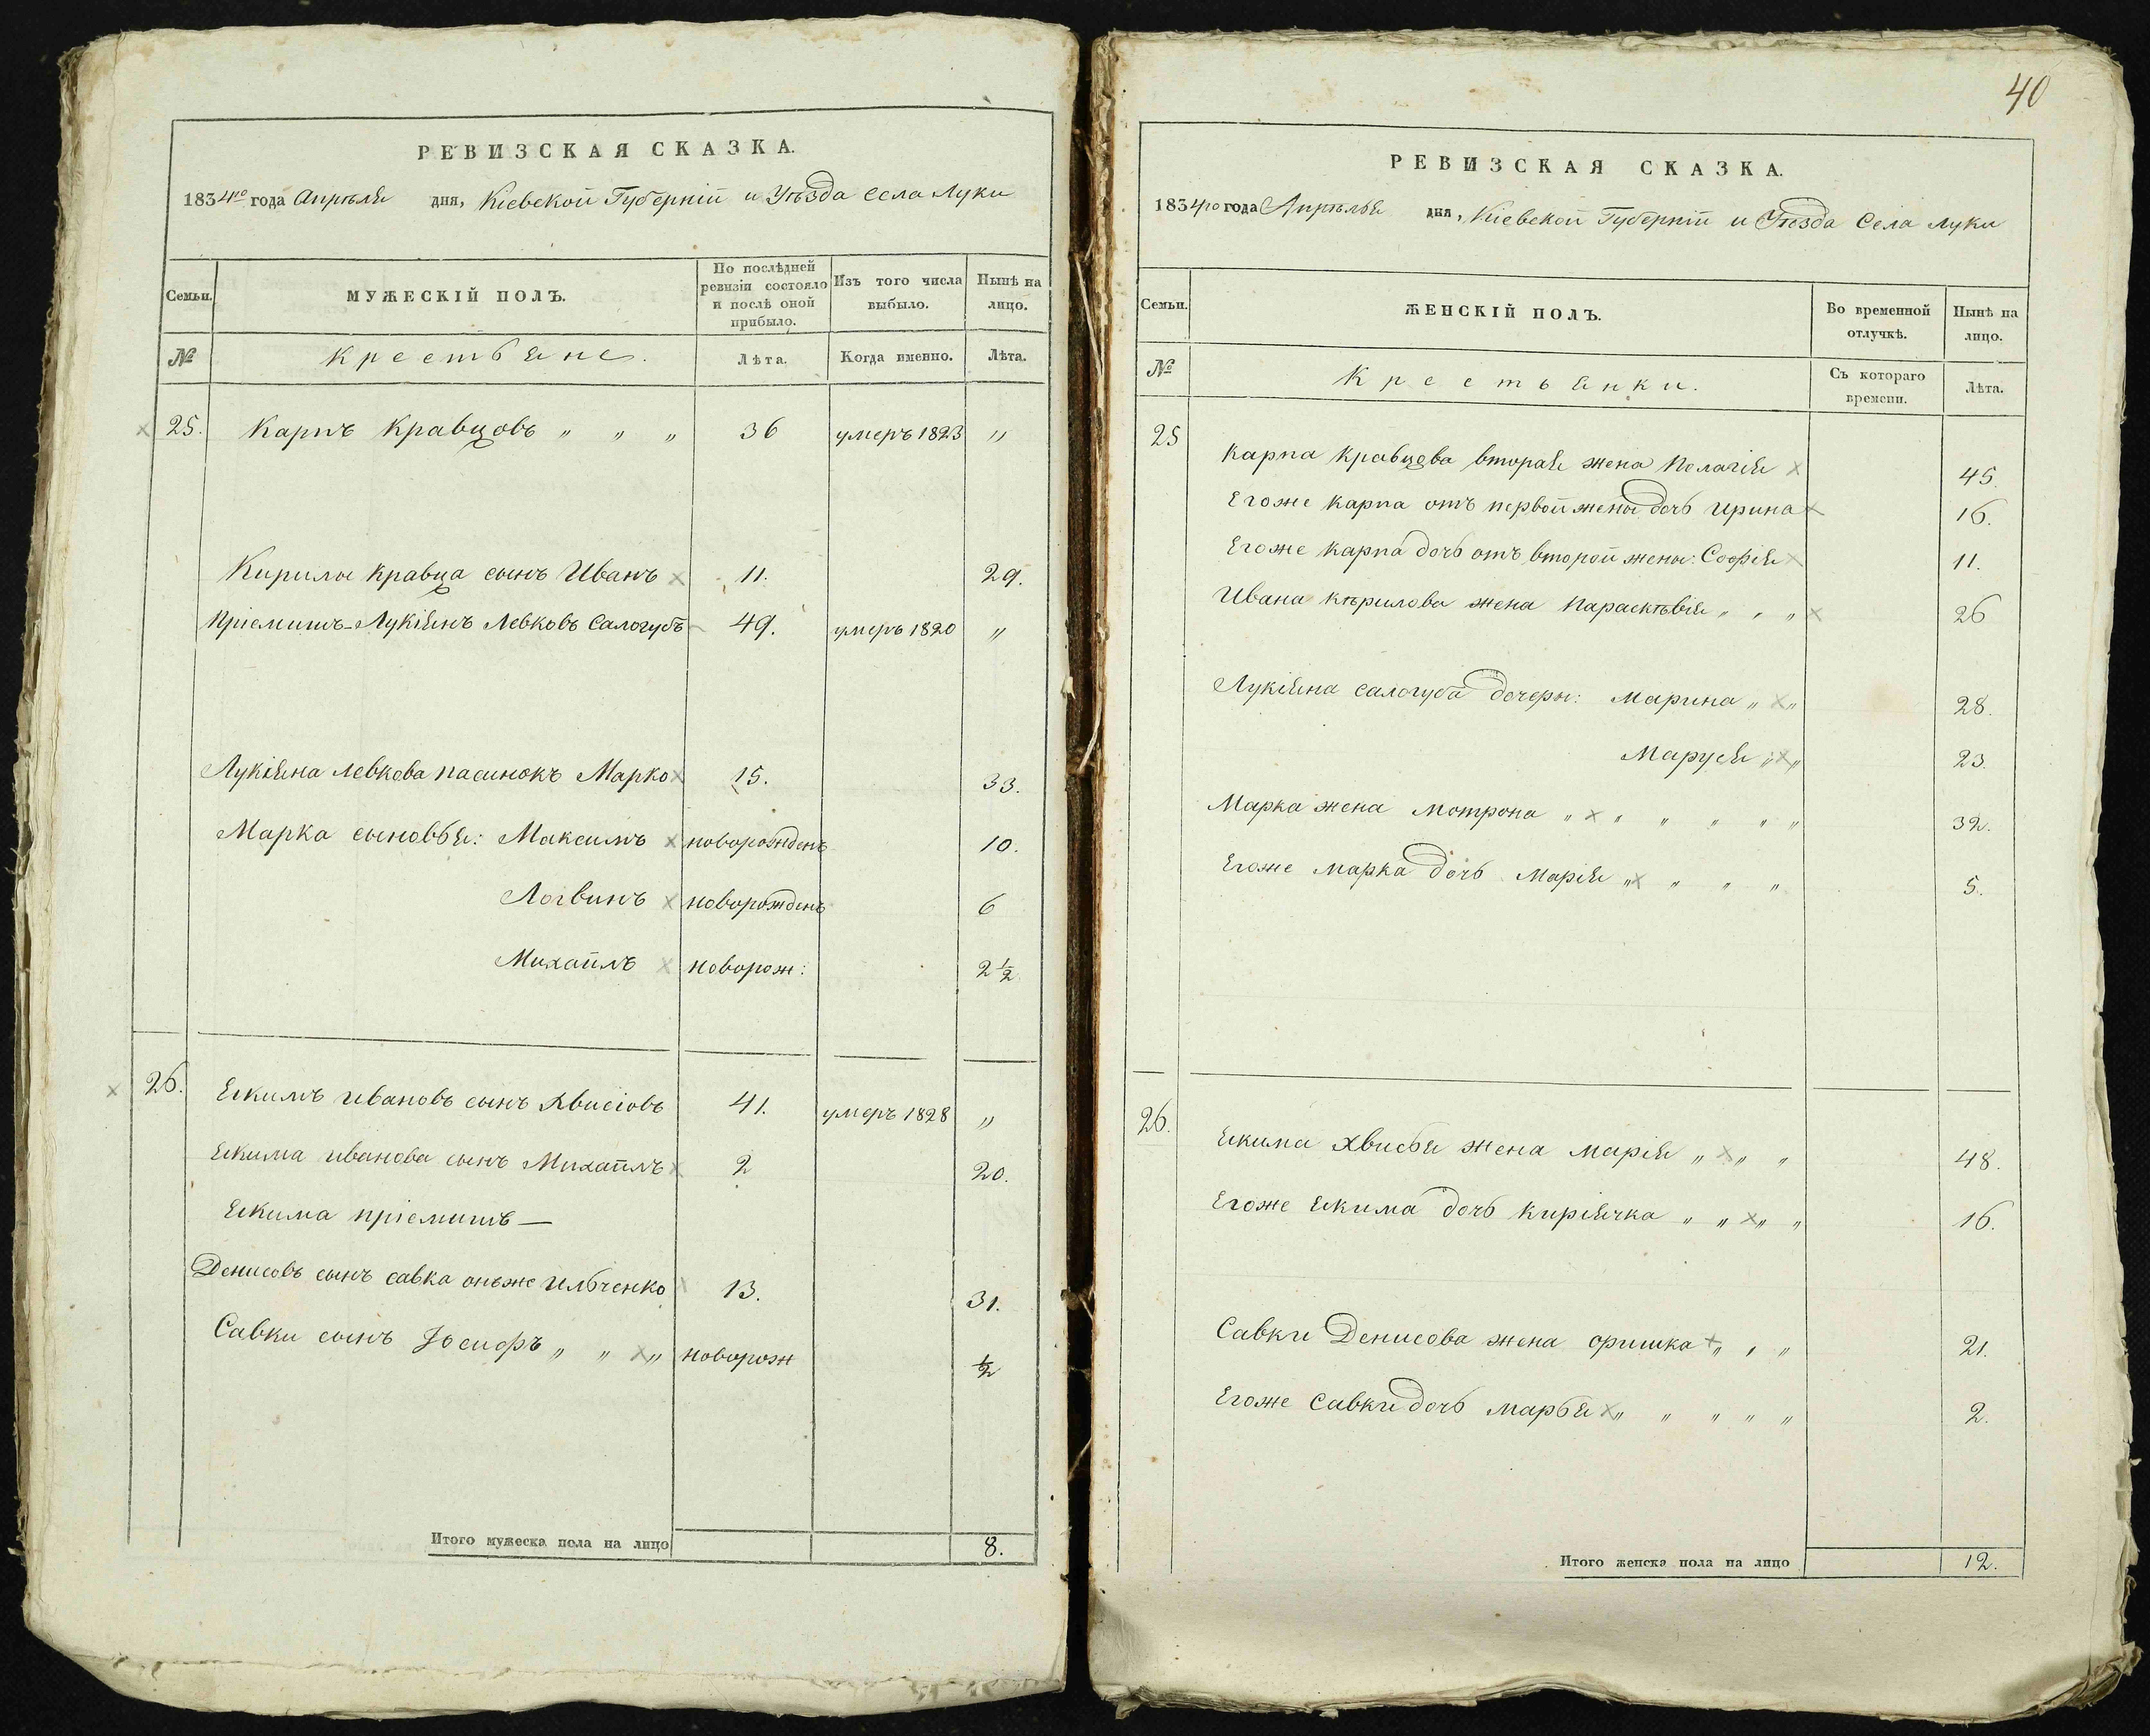 РЕВИЗСКАЯ СКАЗКА.
1834го года Апрѣля дня, Кіевской Губерніи и Уѣзда Села Луки
Семьи.
МУЖЕСКІЙ ПОЛЪ.
По послѣдней ревизіи состояло и послѣ оной прибыло.
Изъ того числа выбыло.
Нынѣ на лицо.
№
Крестьяне.
Лѣта.
Когда именно.
Лѣта.
25. Карпъ Кравцовъ „ „ „ 36 умеръ 1823 „
Кирилы Кравца сынъ Иванъ 11. 29.
Пріемишъ-Лукіянъ Левковъ Салогубъ 49. умеръ 1820 „
Лукіяна Левкова пасинокъ Марко 15. 33.
Марка сыновья: Максимъ новорожденъ 10.
Логвинъ новорожденъ 6
Михаилъ новорож: 2 1/2
26. Якимъ Ивановъ сынъ Хвисіовъ 41. умеръ 1828 „
Якима Иванова сынъ Михаилъ 2 20.
Якима пріемишъ —
Денисовъ сынъ Савка онъже Ильченко 13. 31.
Савки сынъ Іосифъ „ „ „ новорож 1/2
Итого мужеска пола на лицо 8.
40
РЕВИЗСКАЯ СКАЗКА.
1834го года Апрѣлья дня, Кіевской Губерніи и Уѣзда Села Луки
Семьи.
ЖЕНСКІЙ ПОЛЪ.
Во временной отлучкѣ.
Нынѣ на лицо.
№
Крестьянки.
Съ котораго времени.
Лѣта.
25 Карпа Кравцова вторая жена Пелагія 45.
Егоже Карпа отъ первой жены дочь Ирина 16.
Егоже Карпа дочь отъ второй жены: Софія 11.
Ивана Кѣрилова жена Параскѣвія „ „ „ 26
Лукіяна Салогуба дочери: Марина „ „ 28.
Маруся „ „ 23.
Марка жена Мотрона „ „ „ „ „ „ 32.
Егоже Марка дочь Марія „ „ „ „ 5.
26. Якима Хвисья жена Марія „ „ „ 48.
Егоже Якима дочь Киріячка „ „ „ „ 16.
Савки Денисова жена Оришка „ „ „ 21.
Егоже Савки дочь Марья „ „ „ „ „ 2.
Итого женска пола на лицо 12.